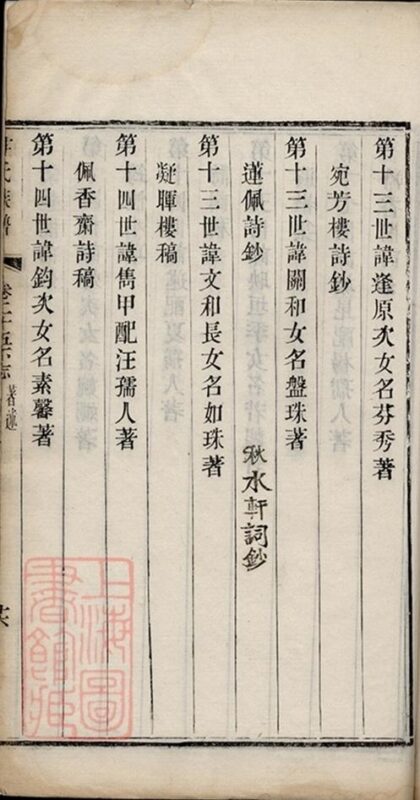 第十三世諱逢原次女名芬秀著
宛芳樓詩鈔
第十三世諱關和女名盤珠著
蓮佩詩鈔 秋水軒詞鈔
第十三世諱文和長女名如珠著
凝暉樓稿
第十四世諱雋甲配汪孺人著
佩香齋詩稿
第十四世諱鈞次女名素馨著
氏族譜
著述
上海圖書館藏